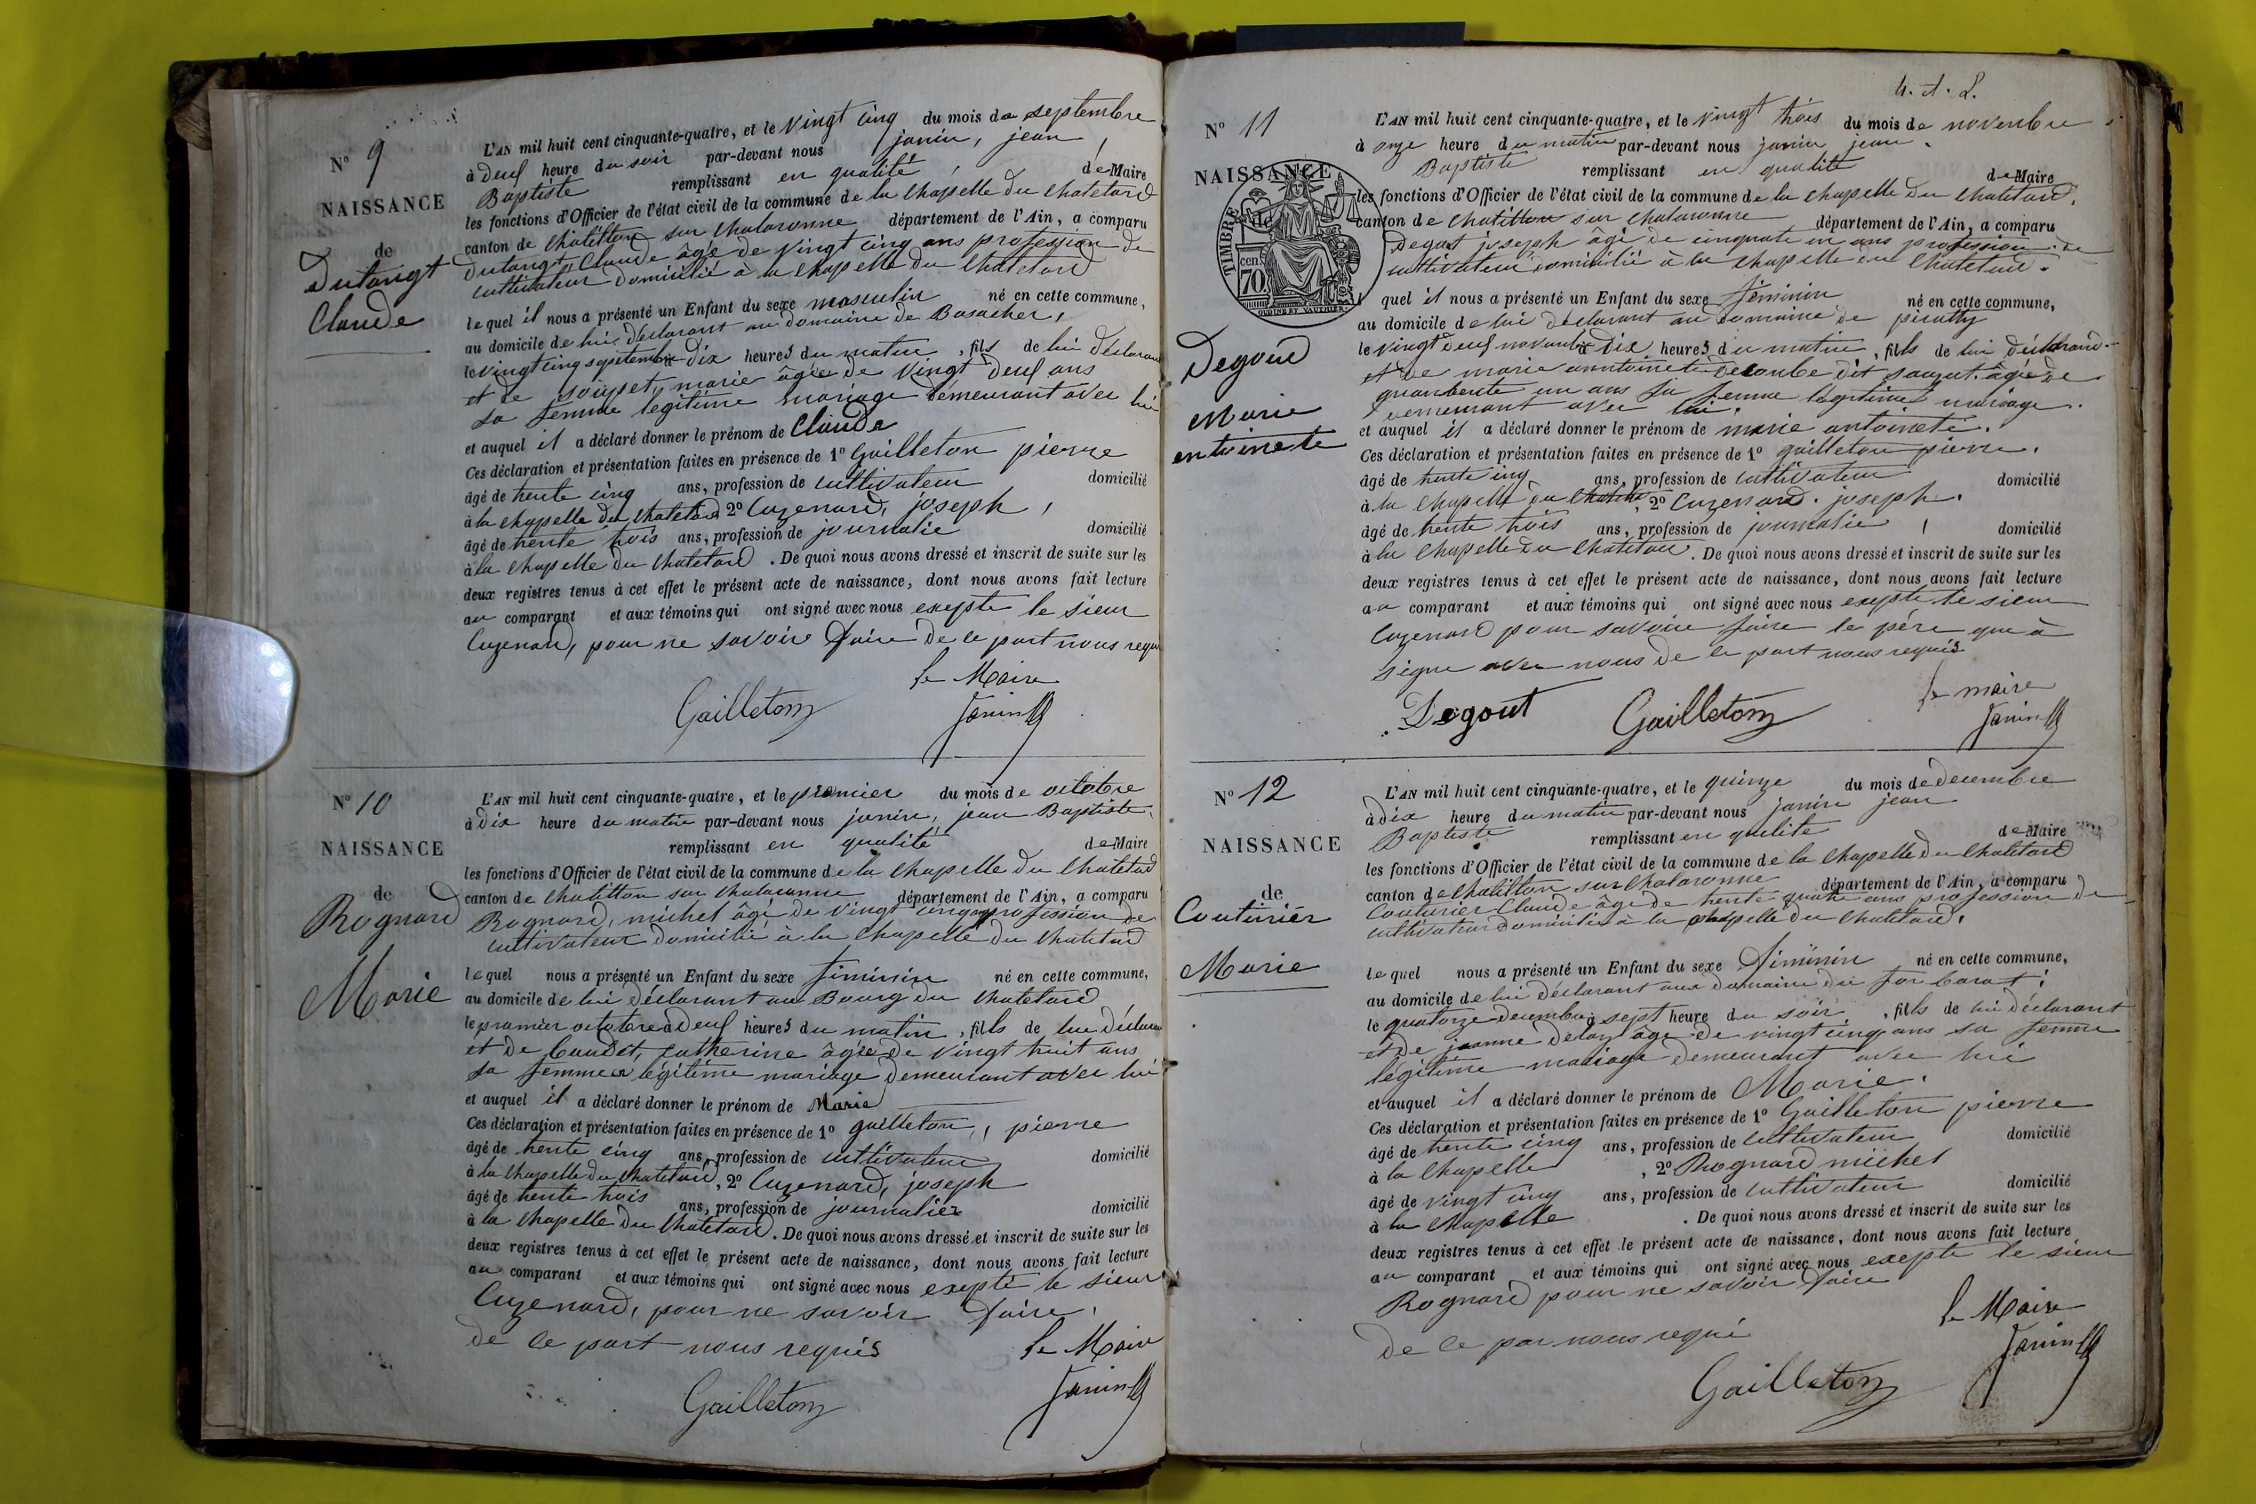 N° 9
NAISSANCE
de
Dutangt
Claude
L'AN mil huit cent cinquante-quatre, et le vingt cinq du mois de septembre
à deuf heure du soir par-devant nous janin, jean
Baptiste remplissant en qualité de Maire
les fonctions d'Officier de l'état civil de la commune de la Chapelle du Chatelard
canton de Chatillon sur Chalaronne département de l'Ain, a comparu
Dutangt, Claude âgée de vingt cinq ans profession de
cultivateur domicilié à la Chapelle du Chatelard
lequel il nous a présenté un Enfant du sexe masculin né en cette commune,
au domicile de lui déclarant au domaine de Basacher,
le vingt cinq septembre à dix heures du matin, fils de lui déclarant
et de marie âgée de vingt deuf ans
sa femme legitime mariage demeurant avec lui
et auquel il a déclaré donner le prénom de Claude
Ces déclaration et présentation faites en présence de 1° Gailleton pierre
âgé de trente cinq ans, profession de cultivateur domicilié
à la Chapelle du Chatelard 2° Cuzenard, joseph,
âgé de trente trois ans, profession de journalie domicilié
à la Chapelle du Chatelard. De quoi nous avons dressé et inscrit de suite sur les
deux registres tenus à cet effet le présent acte de naissance, dont nous avons fait lecture
au comparant et aux témoins qui ont signé avec nous exepte le sieur
Cuzenard, pour ne savoir faire de ce part nous requi
Le Maire
Gailleton Janin
N° 10
NAISSANCE
de
Rognard
Marie
L'AN mil huit cent cinquante-quatre, et le premier du mois de octobre
à dix heure du matin par-devant nous janin, jean Baptiste,
remplissant en qualité de Maire
les fonctions d'Officier de l'état civil de la commune de la Chapelle du Chatelard
canton de Chatillon sur Chalaronne département de l'Ain, a comparu
Rognard, michel âgé de vingt cinq ans profession de
cultivateur domicilié à la Chapelle du Chatelard
lequel nous a présenté un Enfant du sexe feminin né en cette commune,
au domicile de lui déclarant au Bourg du Chatelard
le premier octobre à deuf heures du matin, fills de lui déclarant
et de Caudet, catherine âgée de vingt huit ans
sa femme légitime mariage demeurant avec lui
et auquel il a déclaré donner le prénom de Marie
Ces déclaration et présentation faites en présence de 1° gailleton, pierre
âgé de trente cinq ans, profession de cultivateur domicilié
à la Chapelle du Chatelard, 2° Cuzenard, joseph
âgé de trente trois ans, profession de journalier domicilié
à la Chapelle du Chatelard. De quoi nous avons dressé et inscrit de suite sur les
deux registres tenus à cet effet le présent acte de naissance, dont nous avons fait lecture
au comparant et aux témoins qui ont signé avec nous exepté le sieur
Cuzenard, pour ne savoir faire,
de ce part nous requis Le Maire
Gailleton Janin
N° 11
NAISSANCE
de
TIMBRE
cen 70
OUDINE ET VAUTHIER
Degoud
Marie
entoinete
L'AN mil huit cent cinquante-quatre, et le vingt trois du mois de novembre
à onze heure du matin par-devant nous janin jean
Baptiste remplissant en qualité de Maire
les fonctions d'Officier de l'état civil de la commune de la chapelle du Chatelard,
canton de Chatillon sur Chalaronne département de l'Ain, a comparu
Degout joseph âgé de cinquate un ans profession de
cultivateur domicilié à la chapelle du Chatelard.
quel il nous a présenté un Enfant du sexe féminin né en cette commune,
au domicile de lui déclarant au domaine de
le vingt deuf novembre à dix heures du matin, fills de lui déclarand
et de marie anntoinete decombe dit âgée de
quarbente un ans sa femme legitime mariage
demeurant avec lui.
et auquel il a déclaré donner le prénom de marie antoinete.
Ces déclaration et présentation faites en présence de 1° gailleton pierre,
âgé de trente cinq ans, profession de cultivateur domicilié
à la Chapelle du Chatelar, 2° Cuzenard. joseph.
âgé de trente trois ans, profession de journalie domicilié
à la Chapelle du Chatelar. De quoi nous avons dressé et inscrit de suite sur les
deux registres tenus à cet effet le présent acte de naissance, dont nous avons fait lecture
au comparant et aux témoins qui ont signé avec nous exepte le sieur
Cuzenard pour savoir faire le pére que à
signe avec nous de ce part nous requis
le maire
Degout Gailleton Janin
N° 12
NAISSANCE
de
Couturiér
Marie
L'AN mil huit cent cinquante-quatre, et le quinze du mois de decembre
à dix heure du matin par-devant nous janin jean
Baptiste remplissant en qualité de Maire
les fonctions d'Officier de l'état civil de la commune de la Chapelle du Chatelard
canton de Chatillon sur Chalaronne département de l'Ain, a comparu
Couturier Claude âgé de trente quatre ans profession de
cultivateur domicilié à la chapelle du Chatelard,
lequel nous a présenté un Enfant du sexe féminin né en cette commune,
au domicile de lui déclarant aux domaine du
le quatorze decembre à sept heure du soir, fills de lui déclarant
et de jeanne delay âge de vingt cinq ans sa femme
légitime mariage demeurant avec lui
et auquel il a déclaré donner le prénom de Marie.
Ces déclaration et présentation faites en présence de 1° Gailleton pierre
âgé de trente cinq ans, profession de cultivateur domicilié
à la Chapelle, 2° Rognard michel
âgé de vingt cinq ans, profession de cultivateur domicilié
à la chapelle. De quoi nous avons dressé et inscrit de suite sur les
deux registres tenus à cet effet le présent acte de naissance, dont nous avons fait lecture
au comparant et aux témoins qui ont signé avec nous exepte le sieur
Rognard pour ne savoir faire
de ce par nous requi Le Maire
Gailleton Janin